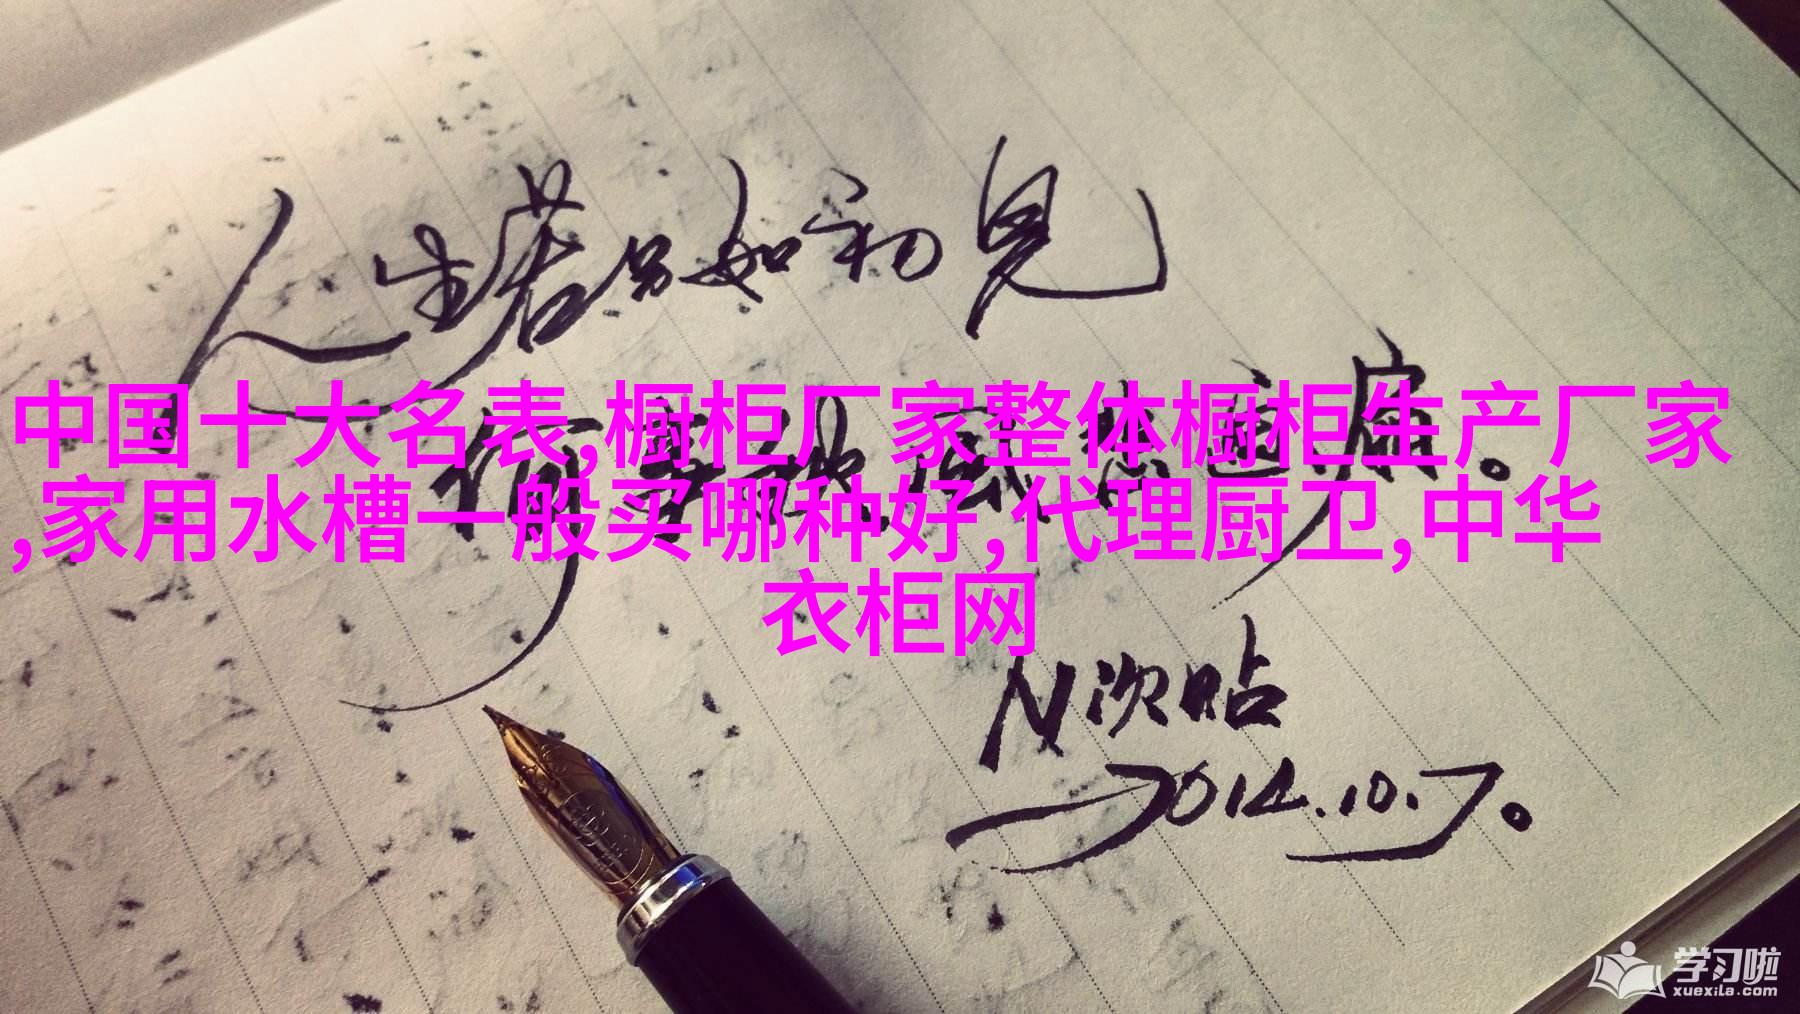 人生若只如初见
中国十大名表,橱柜厂家整体橱柜生产厂家
,家用水槽一般买哪种好,代理厨卫,中华
衣柜网
N次贴
2014.10.7。
学习啦
xuexila.com